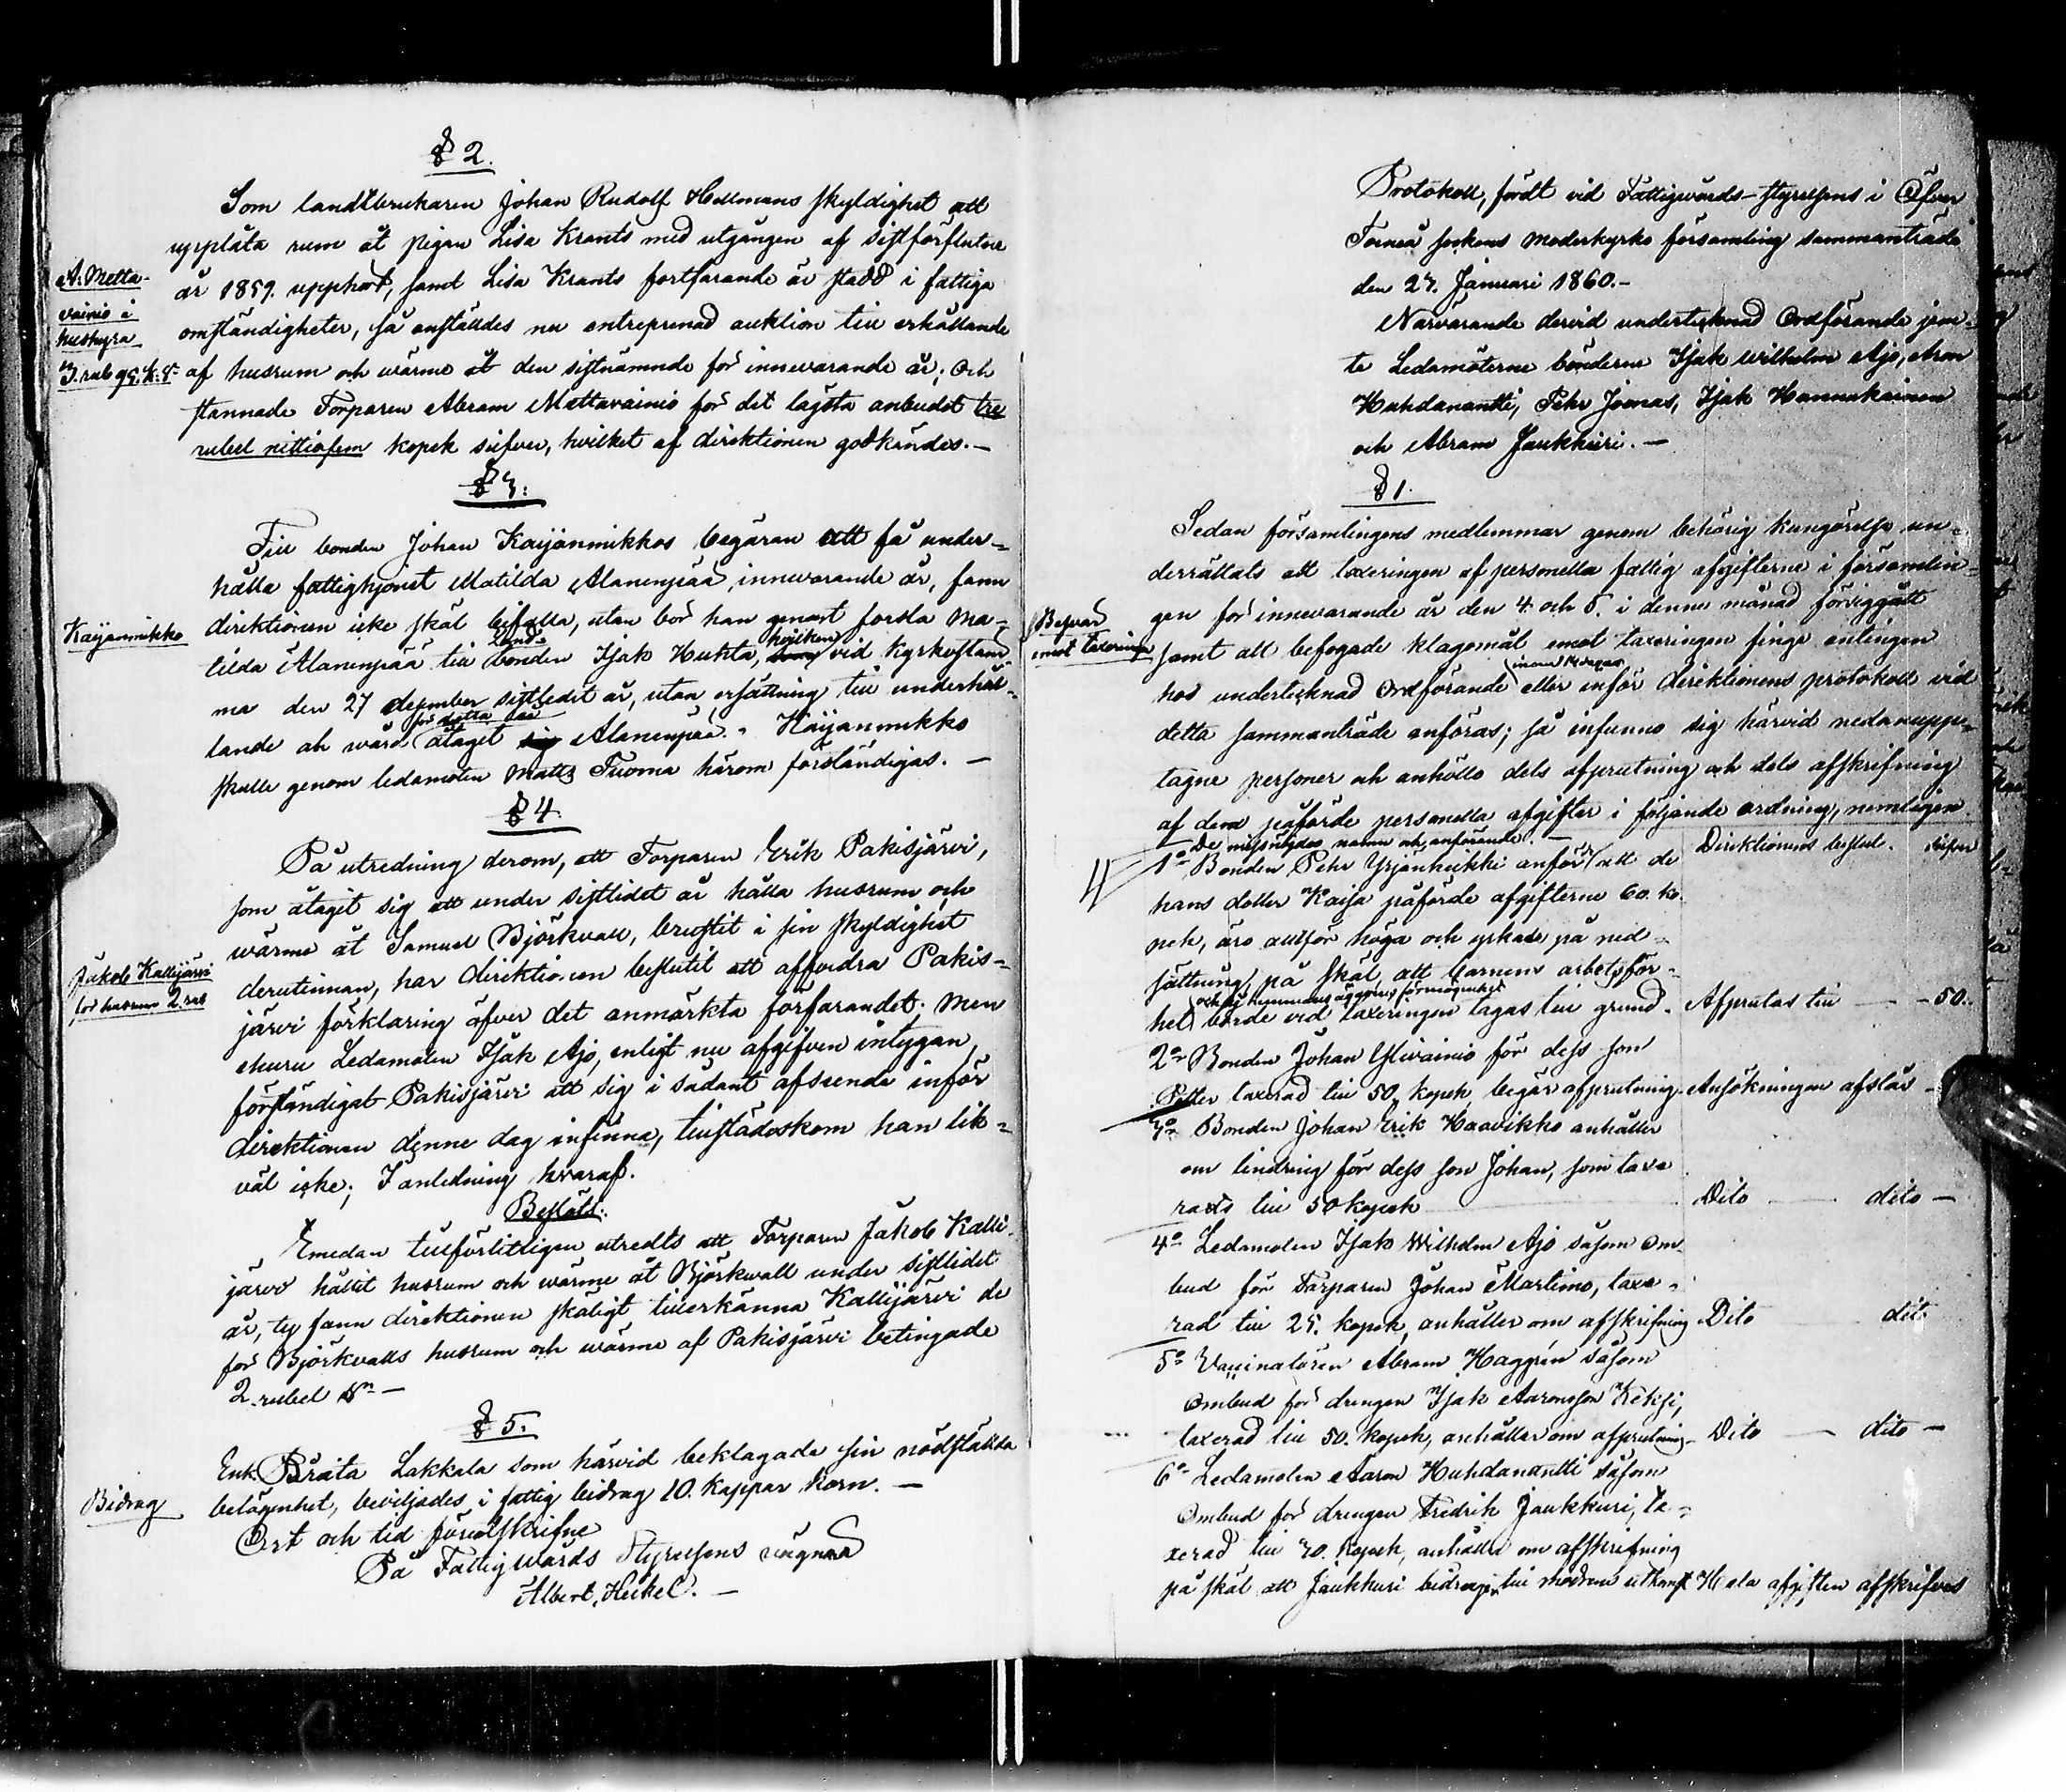 § 2.
Som landtbrukaren Johan Rudolf Hellmans skyldighet att
upplåta rum åt pigan Lisa Krants med utgången af sistförflutne
år 1859. upphört, samt Lisa Krants fortfarande är stadd i fattiga
omständigheter, så anställdes nu entreprenad auktion till erhållande
af husrum och wärme åt den sistnämnde för innevarande år; Och
stannade Torparen Abram Mettavainio för det lägsta anbudet tre
rubel nittiofem kopek silfver, hvilket af direktionen godkändes.—
A. Metta-
vainio i
hushyra
3. rub 95. k: S.
§ 3:
Till bonden Johan Kaijanmikkos begäran att få under-
hålla fattighjonet Matilda Alanenpää, innevarande år, fann
direktionen icke skäl bifalla, utan bör han genast forsla Ma-
tilda Alanenpää till bonden Isak Hukta, hvilken vid kyrkostäm-
ma den 27 december sistledit år, utan ersättning till underhål-
lande och wård för detta år åtagit sig Alanenpää. Kaijanmikko
skulle genom ledamoten Matts Tuoma härom förständigas. —
Kaijanmikko
§ 4.
På utredning derom, att Torparen Erik Pakisjärvi,
som åtagit sig att under sistlidet år hålla husrum och
wärme åt Samuel Björkvall, brustit i sin skyldighet
derutinnan, har direktionen beslutit att affordra Pakis-
järvi förklaring öfver det anmärkta förfarandet; Men
ehuru Ledamoten Isak Ajo, enligt nu afgifven intygan,
förständigat Pakisjärvi att sig i sådant afseende inför
direktionen denne dag infinna, tillstädeskom han lik-
väl icke; I anledning hvaraf.
Jakob Kallijärvi
för husrum 2. rub
Beslöts:
Emedan tillförlitligen utredts att Torparen Jakob Kalli-
järvi hållit husrum och wärme åt Björkwall under sistlidet
år, ty fann direktionen skäligt tillerkänna Kallijärvi de
för Björkvalls husrum och wärme af Pakisjärvi betingade
2. rubel Sr. —
§ 5.
Enk. Brita Lakkala som härvid beklagade sin nödstälda
belägenhet, beviljades i fattig bidrag 10. kappar korn. —
Bidrag
Ort och tid förutskrifne
På Fattigwårds Styrelsens vägnar
Albert Heikel. —
Protokoll, fördt vid Fattigwårds-styrelsens i Öfver
Torneå sockens moderkyrko församling sammanträde
den 27. Januari 1860.—
Närvarande dervid undertecknad Ordförande jem-
te Ledamöterne bönderne Isak Wilhelm Ajo, Aron
Huhdanantti, Pehr Joonas, Isak Hannukainen
och Abram Jaukkuri. —
§ 1.
Sedan församlingens medlemmar genom behörig kungörelse un-
derrättats att taxeringen af personella fattig afgifterne i församlin-
gen för innevarande år den 4. och 5. i denne månad försiggått
samt att befogade klagomål emot taxeringen finge antingen
inom 14 dagar
hos undertecknad Ordförande eller inför direktionens protokoll vid
detta sammanträde anföras; så infunno sig härvid nedanupp-
tagne personer och anhöllo dels afprutning och dels afskrifning
af dem påförde personella afgifter i följande ordning, nemligen
Besvär
emot taxeringen
De missnöjdes namn och anförande. — Direktionens beslut. Silfver
1o Bonden Pehr Yrjänheikki anförde att de
hans dotter Kaisa påförde afgifterne 60. ko-
pek, äro alltför höga och yrkade på ned-
sättning, på skäl, att barnens arbetsför-
och ej hemmans ägarens förmögenhet
het borde vid taxeringen tagas till grund. Afprutas till — 50.
2o Bonden Johan Ylivainio för dess son
Petter taxerad till 50. kopek, begär afprutning. Ansökningen afslås —
3o Bonden Johan Erik Haavikko anhåller
om lindring för dess son Johan, som taxe
rads till 50 kopek Dito — dito —
4o Ledamoten Isak Wilhelm Ajo såsom om-
bud för Torparen Johan Martimo, taxe-
rad till 25. kopek, anhåller om afskrifning Dito dito
5o Vaccinatören Abram Häggrén såsom
Ombud för drengen Isak Aaronsson Keksi,
taxerad till 50. kopek, anhåller om afprutning — Dito — dito —
6o Ledamoten Aaron Huhdanantti såsom
Ombud för drengen Fredrik Jaukkuri, ta-
xerad till 30. kopek, anhåller om afskrifning
på skäl att Jaukkuri bidrager till modrens utkomst Hela afgiften afskrifves